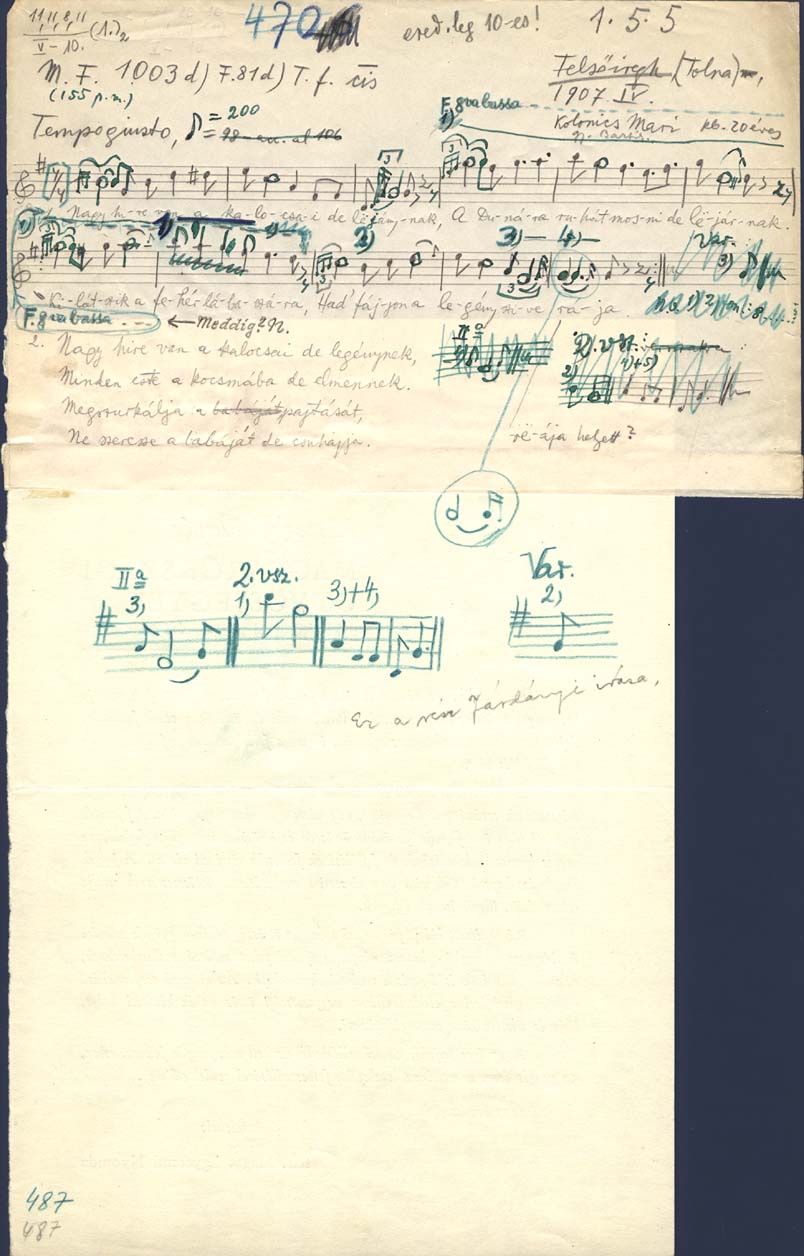 11, 11, 8, 11
V – 10. (1.)2
470
ered.leg 10-es!
1. 5. 5
M. F. 1003 d) F. 81 d) T. f. cis
(155 p.m.)
Felsőiregh (Tolna),
1907. IV.
Tempogiusto, = 200
F. gvabassa
1)
Kolonics Mari kb. 20 éves
Nagy hi-re van a ka-lo-csa-i de le-ány-nak, A Du-ná-ra ru-hát mos-ni de le-jár-nak.
1) 2) 3) 4) Var. 3)
Ki-lát-szik a fe-hér lá-ba szá-ra, Had' fáj-jon a le-gény szi-ve rá-ja.
F. gvabassa ← Meddig? N.
2. Nagy hire van a kalocsai de legénynek,
Minden este a kocsmába de elmennek.
Megcsurkálja a babáját pajtását,
Ne szeresse a babáját de csuhajja.
IIa
2. vsz.
4)+5)
2)
ré-ája helyett?
IIa
3)
2. vsz.
1)
3)+4)
Var.
2)
Ez a rész Járdányi irása.
487
487